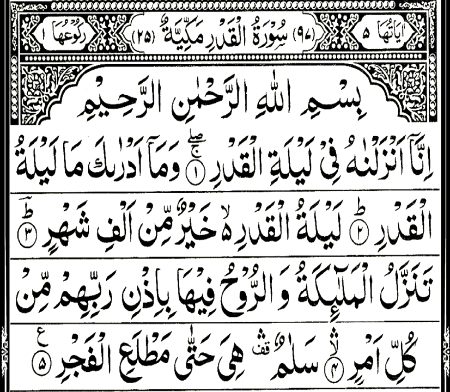 اٰيَاتُهَا ٥ (٩٧) سُوْرَةُ الْقَدْرِ مَكِّيَّةٌ (٢٥) رُكُوْعُهَا ١
بِسْمِ اللّٰهِ الرَّحْمٰنِ الرَّحِيْمِ
اِنَّاۤ اَنْزَلْنٰهُ فِيْ لَيْلَةِ الْقَدْرِ ۖۚ ﴿١﴾ وَمَاۤ اَدْرٰىكَ مَا لَيْلَةُ
الْقَدْرِ ؕ ﴿٢﴾ لَيْلَةُ الْقَدْرِ ۙ خَيْرٌ مِّنْ اَلْفِ شَهْرٍ ؕ ﴿٣﴾
تَنَزَّلُ الْمَلٰٓئِكَةُ وَ الرُّوْحُ فِيْهَا بِاِذْنِ رَبِّهِمْ مِّنْ
كُلِّ اَمْرٍ ۛ ﴿٤﴾ سَلٰمٌ ۛ قف هِيَ حَتّٰى مَطْلَعِ الْفَجْرِ ﴿٥﴾ ع